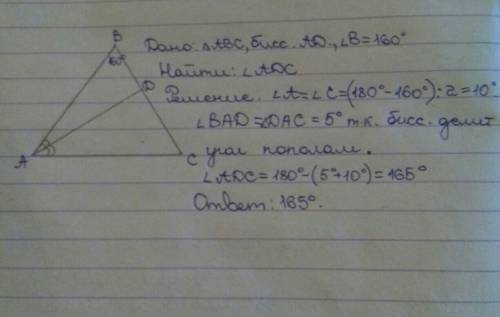 B
60°
D
A
C
Дано: △ABC, бисс. AD., ∠B=160°
Найти: ∠ADC
Решение. ∠A=∠C=(180°-160°):2=10°
∠BAD=∠DAC=5° т.к. бисс. делит
угол пополам.
∠ADC=180°-(5°+10°)=165°
Ответ: 165°.